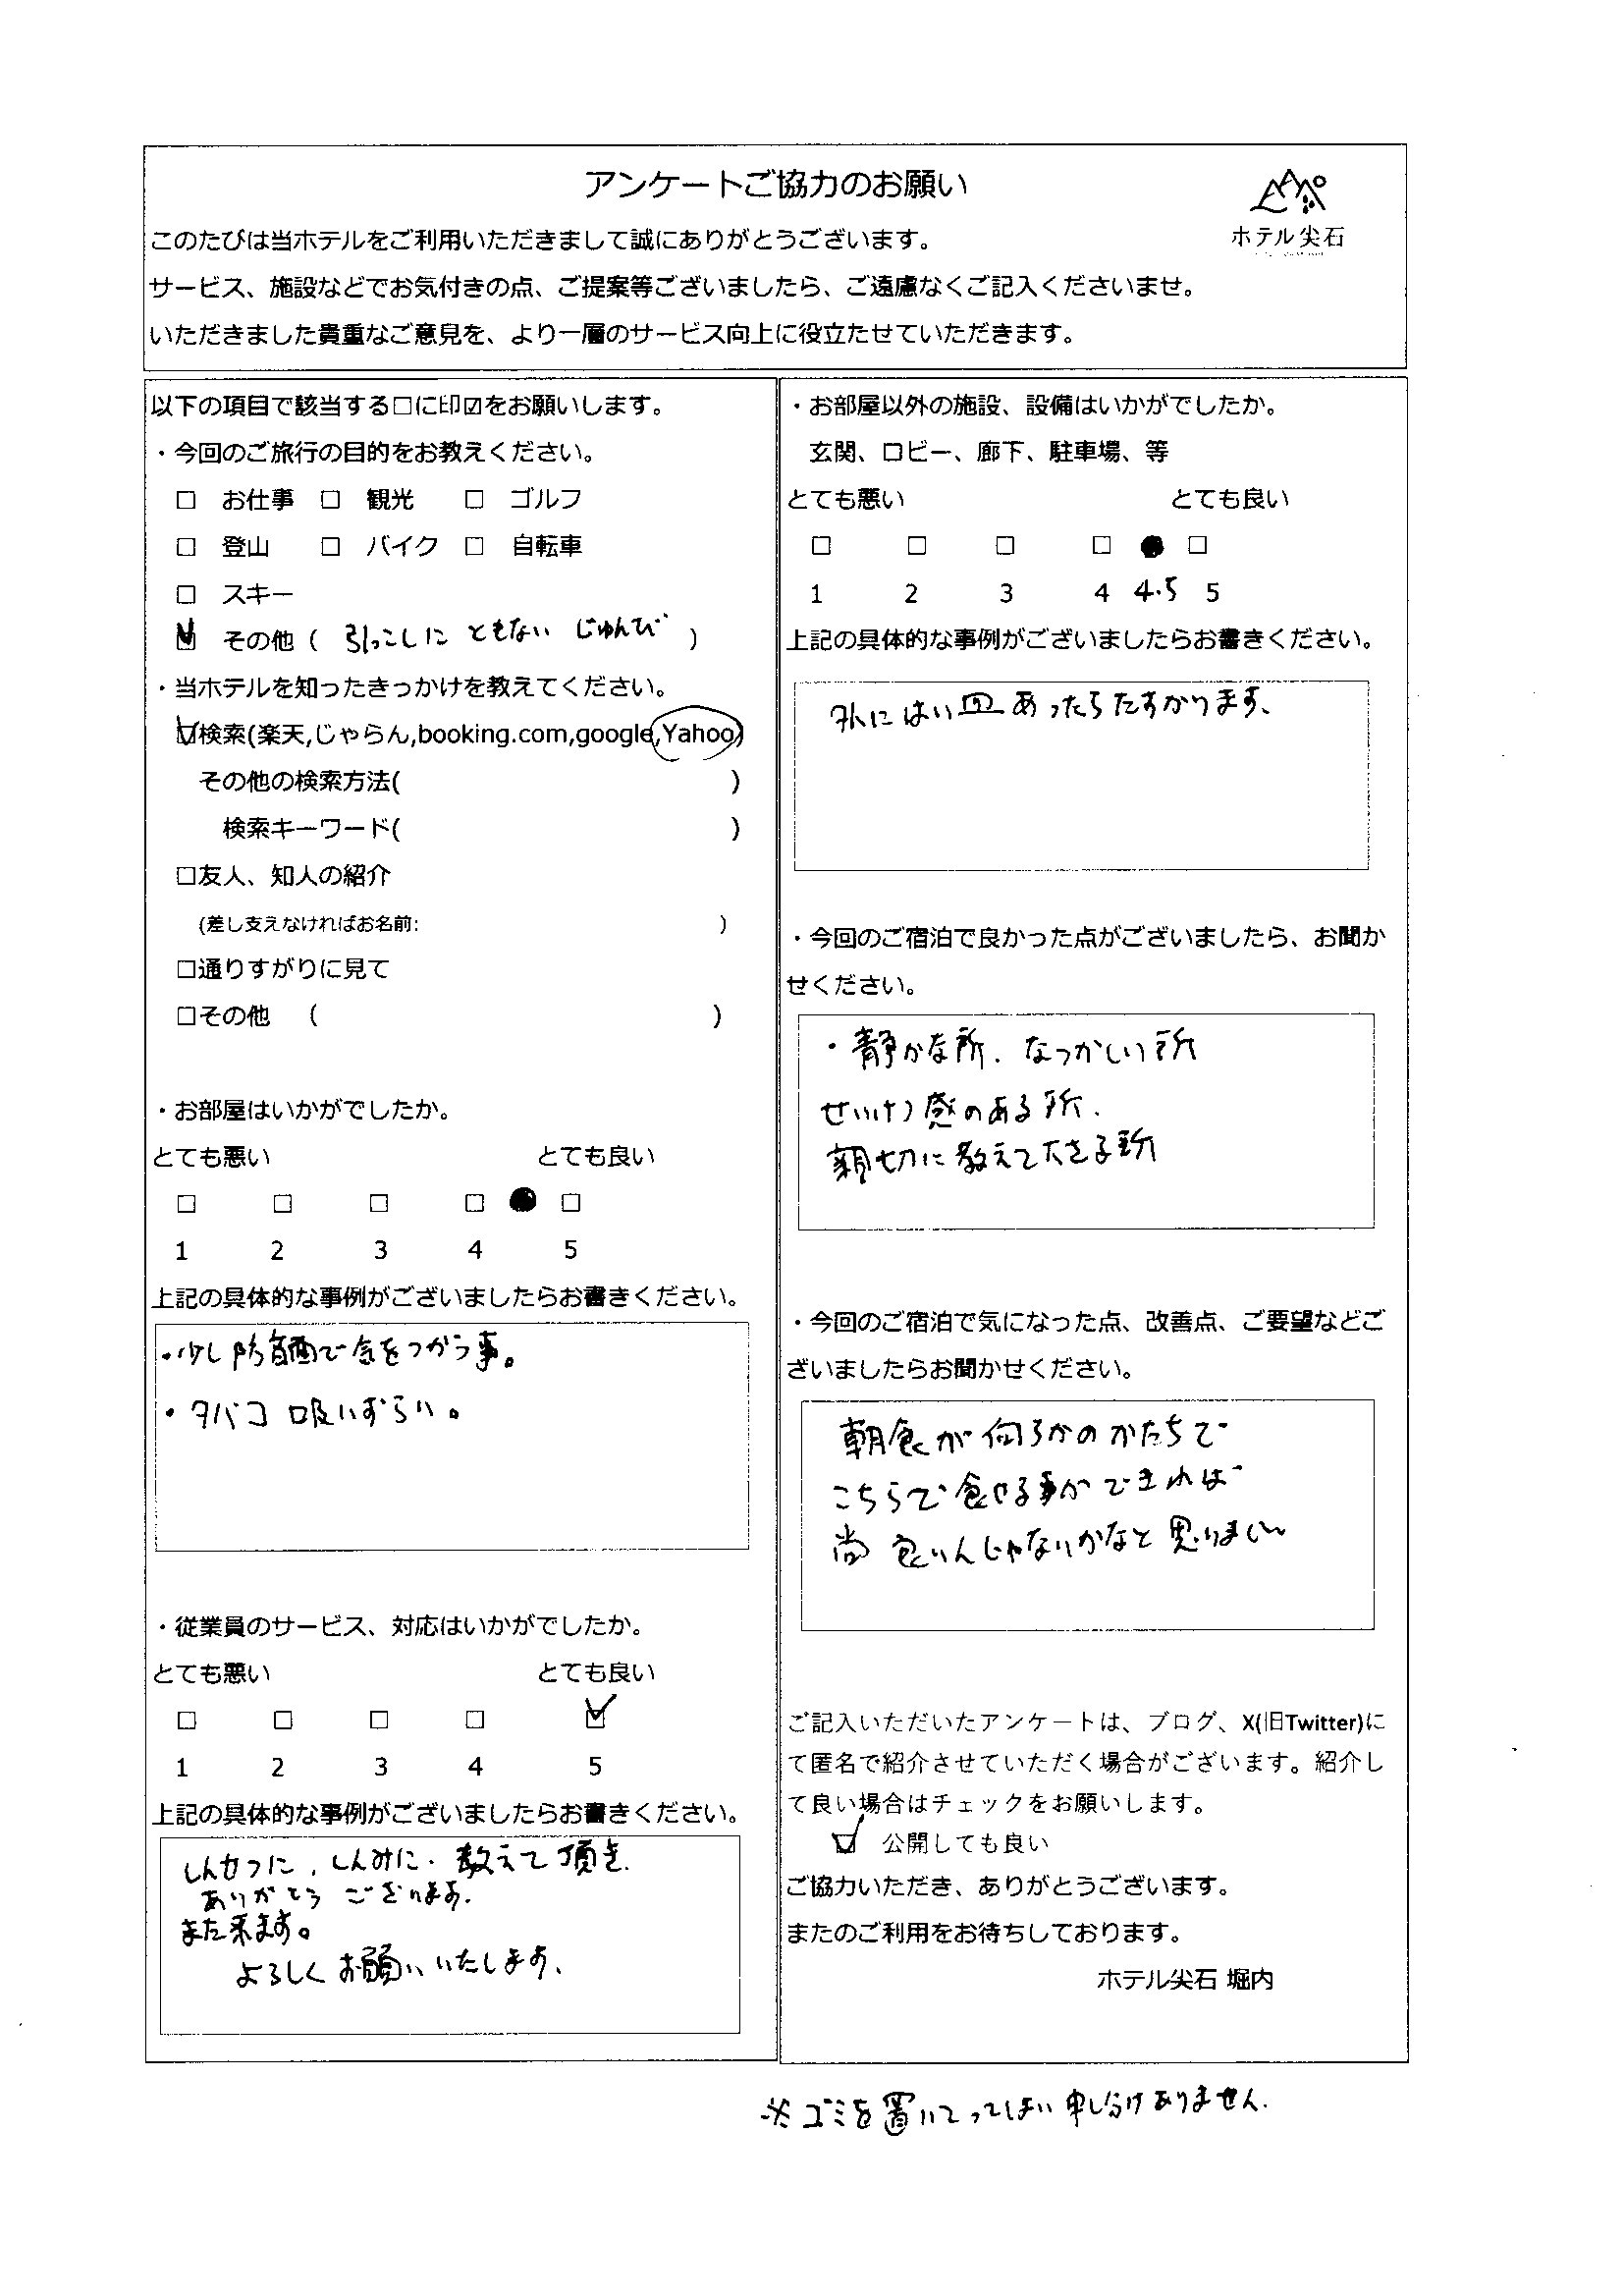 アンケートご協力のお願い
ホテル尖石
このたびは当ホテルをご利用いただきまして誠にありがとうございます。
サービス、施設などでお気付きの点、ご提案等ございましたら、ご遠慮なくご記入くださいませ。
いただきました貴重なご意見を、より一層のサービス向上に役立たせていただきます。
以下の項目で該当する□に印☑をお願いします。
・今回のご旅行の目的をお教えください。
□ お仕事 □ 観光 □ ゴルフ
□ 登山 □ バイク □ 自転車
□ スキー
☑ その他 ( 引っこしに ともない じゅんび )
・当ホテルを知ったきっかけを教えてください。
☑検索(楽天,じゃらん,booking.com,google,Yahoo)
その他の検索方法( )
検索キーワード( )
□友人、知人の紹介
(差し支えなければお名前: )
□通りすがりに見て
□その他 ( )
・お部屋はいかがでしたか。
とても悪い とても良い
□ □ □ □ ● □
1 2 3 4 5
上記の具体的な事例がございましたらお書きください。
・少し防音面で気をつかう事。
・タバコ 吸いずらい。
・従業員のサービス、対応はいかがでしたか。
とても悪い とても良い
□ □ □ □ ☑
1 2 3 4 5
上記の具体的な事例がございましたらお書きください。
しんせつに、しんみに、教えて頂き、
ありがとう ございます。
また来ます。
よろしく お願い いたします。
・お部屋以外の施設、設備はいかがでしたか。
玄関、ロビー、廊下、駐車場、等
とても悪い とても良い
□ □ □ □ ● □
1 2 3 4 4.5 5
上記の具体的な事例がございましたらお書きください。
外に はい皿 あったら たすかります、
・今回のご宿泊で良かった点がございましたら、お聞か
せください。
・静かな所、なつかしい所
せいけつ感のある所、
親切に教えて下さる所
・今回のご宿泊で気になった点、改善点、ご要望などご
ざいましたらお聞かせください。
朝食が何らかのかたちで
こちらで食せる事ができれば
尚 良いんじゃないかなと 思いました
ご記入いただいたアンケートは、ブログ、X(旧Twitter)に
て匿名で紹介させていただく場合がございます。紹介し
て良い場合はチェックをお願いします。
☑ 公開しても良い
ご協力いただき、ありがとうございます。
またのご利用をお待ちしております。
ホテル尖石 堀内
※ ゴミを置いてってしまい 申し分けありません.